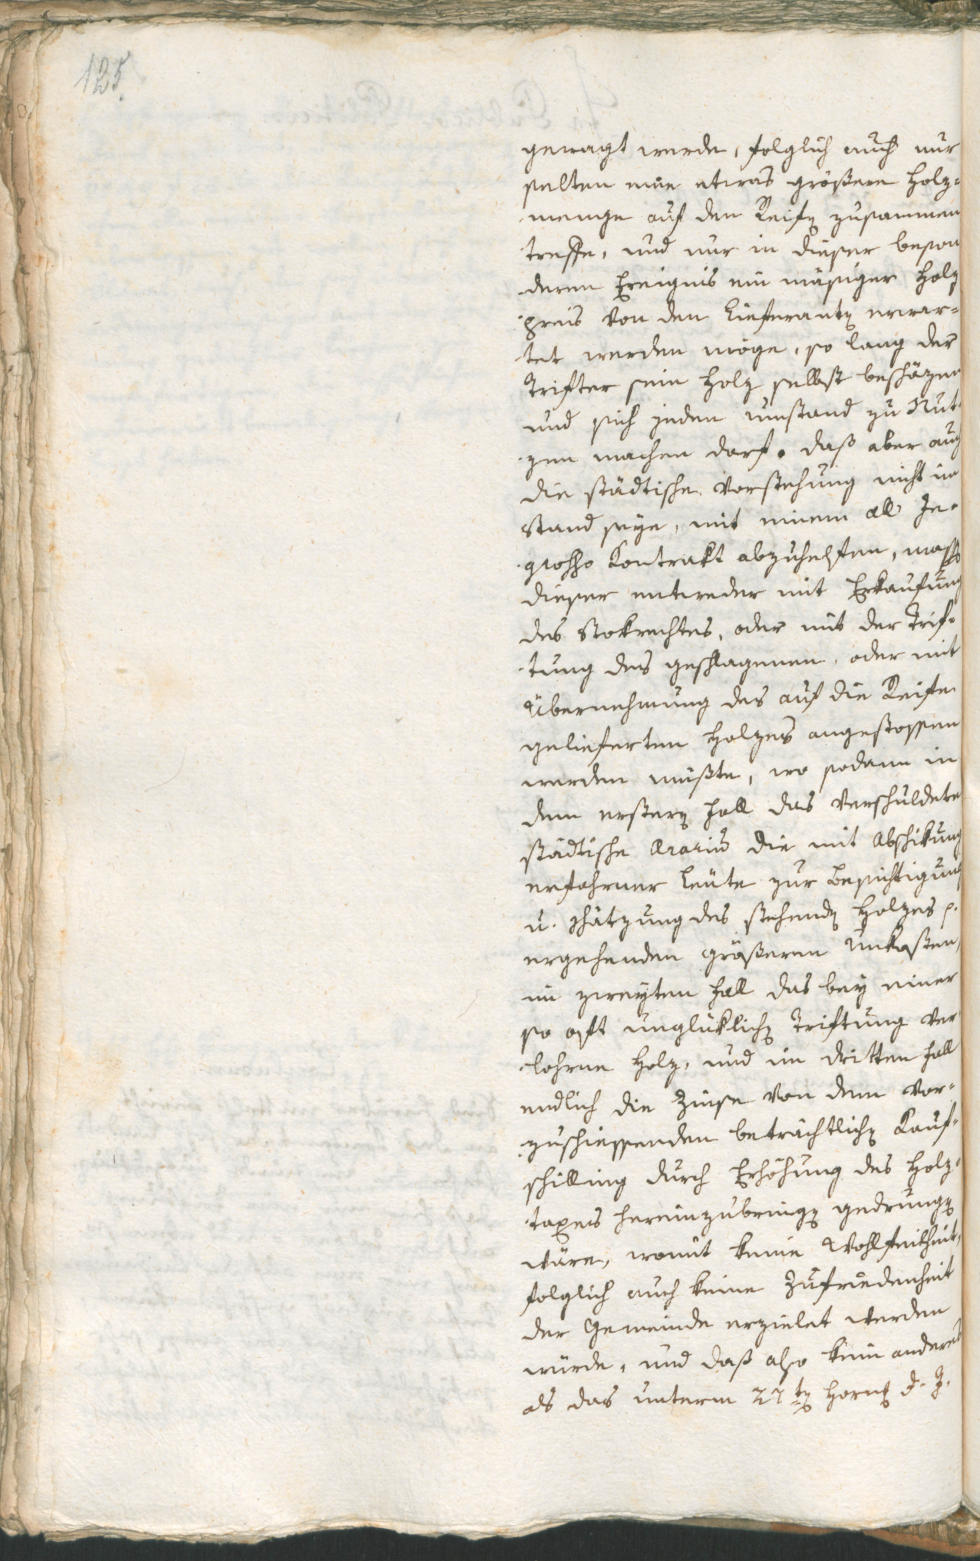 125.
gewagt werde, folglich auch nur
selten eine etwas größere Holz-
menge auf den Reifen zusammen
treffe, und nur in dieser beson
deren Ereignis ein mäsiger Holz
preis von den Lieferanten erwar-
tet werden möge, so lang der
Trifter sein Holz selbst beschäzen
und sich jeden umstand zu Nut-
zen machen darf. daß aber auch
die städtische Vorstehung nicht im
Stand seye, mit einem all In-
grosso Kontrakt abzuhelfen, masse
dieser entweder mit Erkaufung
des Stokrechtes, oder mit der Trif-
tung des geschlagenen, oder mit
Übernehmung des auf die Reife
gelieferten Holzes angestossen
werden müßte, wo sodann in
dem ersteren Fall das Verschuldete
städtische Ararium die mit Abschikung
erfahrner Leute zur Besichtigung
u. Schätzung des stehenden Holzes
ergehenden größeren Unkosten,
im zweyten Fall das bey einer
so oft unglüklichen Triftung ver
lohrne Holz, und im dritten Fall
endlich die Zinse von dem vor-
zuschiessenden beträchtlichen Kauf-
schilling durch Erhöhung des Holz-
taxes hereinzubringen gedrungen
wäre, womit keine Wohlfeilheit,
folglich auch keine Zufriedenheit
der Gemeinde erzielet werden
würde, und daß also kein anderes
als das unterm 27ten Hornung d. J.